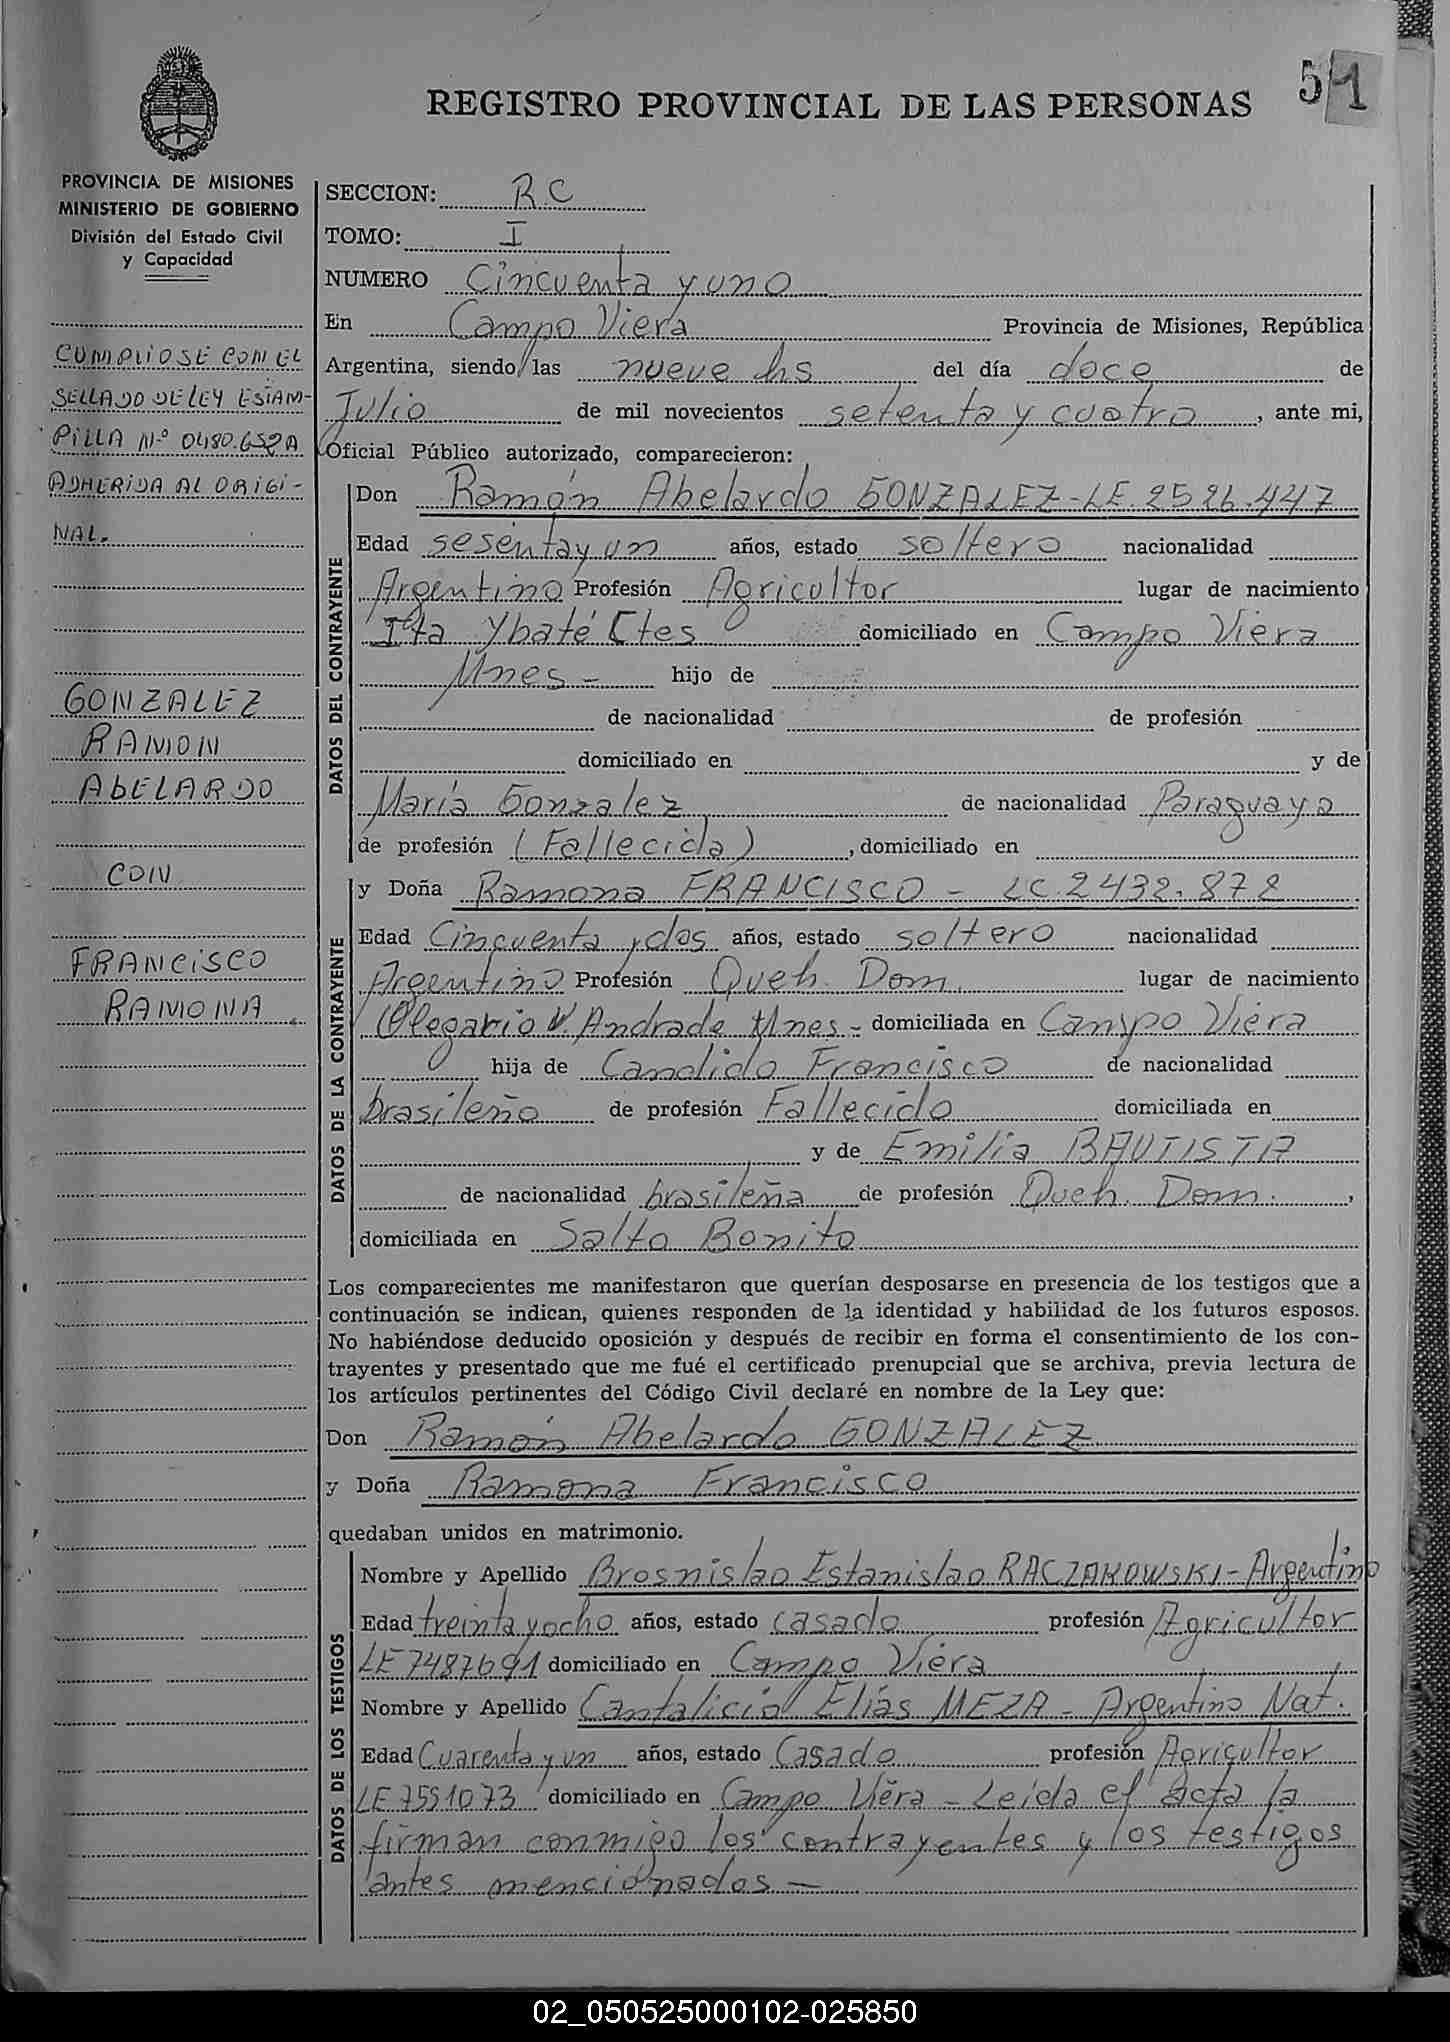 51
REGISTRO PROVINCIAL DE LAS PERSONAS
PROVINCIA DE MISIONES
MINISTERIO DE GOBIERNO
División del Estado Civil
y Capacidad
CUMPLIOSE CON EL
SELLADO DE LEY ESTAM-
PILLA Nº 0480.652A
ADHERIDA AL ORIGI-
NAL.
GONZALEZ
RAMON
ABELARDO
CON
FRANCISCO
RAMONA
SECCION: R.C
TOMO: I
NUMERO Cincuenta y uno
En Campo Viera Provincia de Misiones, República
Argentina, siendo las nueve hs del día doce de
Julio de mil novecientos setenta y cuatro, ante mi,
Oficial Público autorizado, comparecieron:
DATOS DEL CONTRAYENTE
Don Ramón Abelardo GONZALEZ - LE. 2526.447
Edad sesenta y un años, estado soltero nacionalidad
Argentino Profesión Agricultor lugar de nacimiento
Ita Ybaté Ctes domiciliado en Campo Viera
Mnes - hijo de
de nacionalidad de profesión
domiciliado en y de
María Gonzalez de nacionalidad Paraguaya
de profesión (Fallecida), domiciliado en
DATOS DE LA CONTRAYENTE
y Doña Ramona FRANCISCO - LC. 2432.872
Edad Cincuenta y dos años, estado soltero nacionalidad
Argentino Profesión Queh. Dom. lugar de nacimiento
Olegario V. Andrade Mnes - domiciliada en Campo Viera
hija de Candido Francisco de nacionalidad
brasileño de profesión Fallecido domiciliada en
y de Emilia BAUTISTA
de nacionalidad brasileña de profesión Queh. Dom.,
domiciliada en Salto Bonito
Los comparecientes me manifestaron que querían desposarse en presencia de los testigos que a
continuación se indican, quienes responden de la identidad y habilidad de los futuros esposos.
No habiéndose deducido oposición y después de recibir en forma el consentimiento de los con-
trayentes y presentado que me fué el certificado prenupcial que se archiva, previa lectura de
los artículos pertinentes del Código Civil declaré en nombre de la Ley que:
Don Ramón Abelardo GONZALEZ
y Doña Ramona Francisco
quedaban unidos en matrimonio.
DATOS DE LOS TESTIGOS
Nombre y Apellido Brosnislao Estanislao RACZAKOWSKI - Argentino
Edad treinta y ocho años, estado casado profesión Agricultor
LE 7487691 domiciliado en Campo Viera
Nombre y Apellido Cantalicio Elías MEZA - Argentino Nat.
Edad Cuarenta y un años, estado Casado profesión Agricultor
LE 7551073 domiciliado en Campo Viera - Leída el acta la
firman conmigo los contrayentes y los testigos
antes mencionados -
02_050525000102-025850